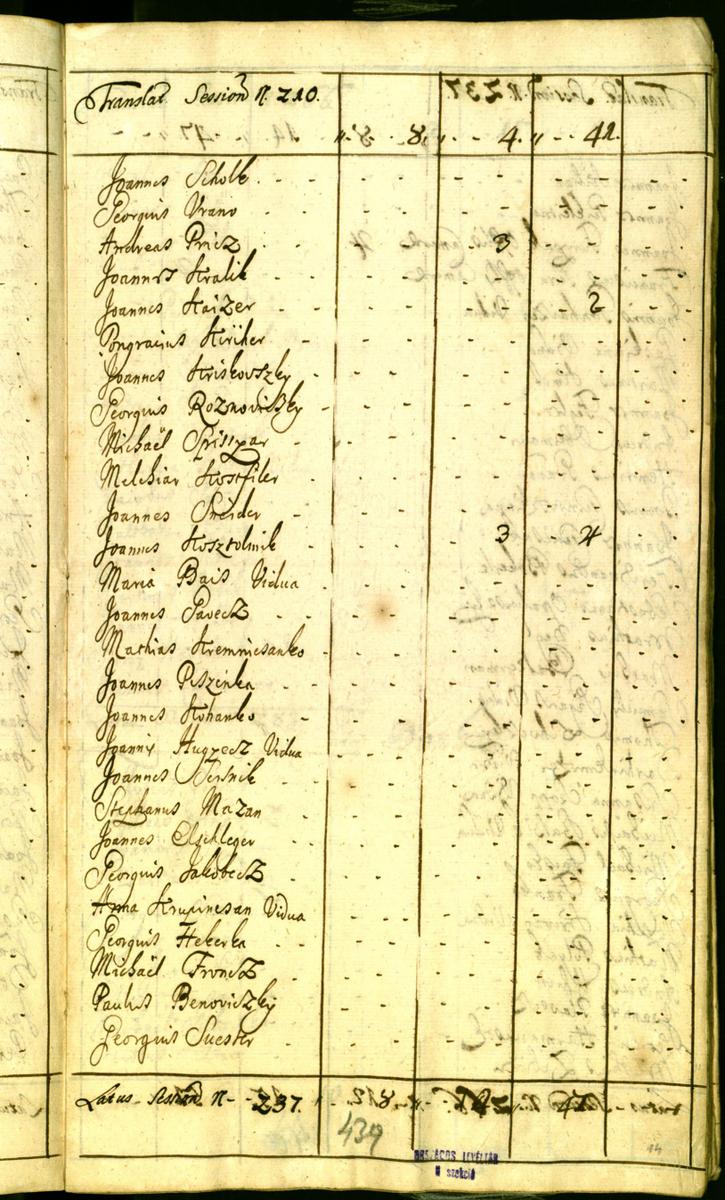 Translat Session N. 210.
8. 8. 4. 42.
Joannes Scholl
Georgius Urano
Andreas Princz 3
Joannes Kralik
Joannes Kaizer 2
Pongracius Kriher
Joannes Kriskovszky
Georgius Roznoviczky
Michaël Spiszar
Melchiar Kostfiler
Joannes Sneider
Joannes Kosztolnik 3 4
Maria Bais Vidua
Joannes Pavecz
Mathias Kremnicsanko
Joannes Peszinka
Joannes Kohanko
Joannis Hugyecz Vidua
Joannes
Stephanus Mazan
Joannes Elschleger
Georgius Jakobecz
Anna Krupincsan Vidua
Georgius Hekerka
Michaël Froncz
Paulus Benoviczky
Georgius Suester
Latus Session N 237.
439
ORSZÁGOS LEVÉLTÁR
szekció
14